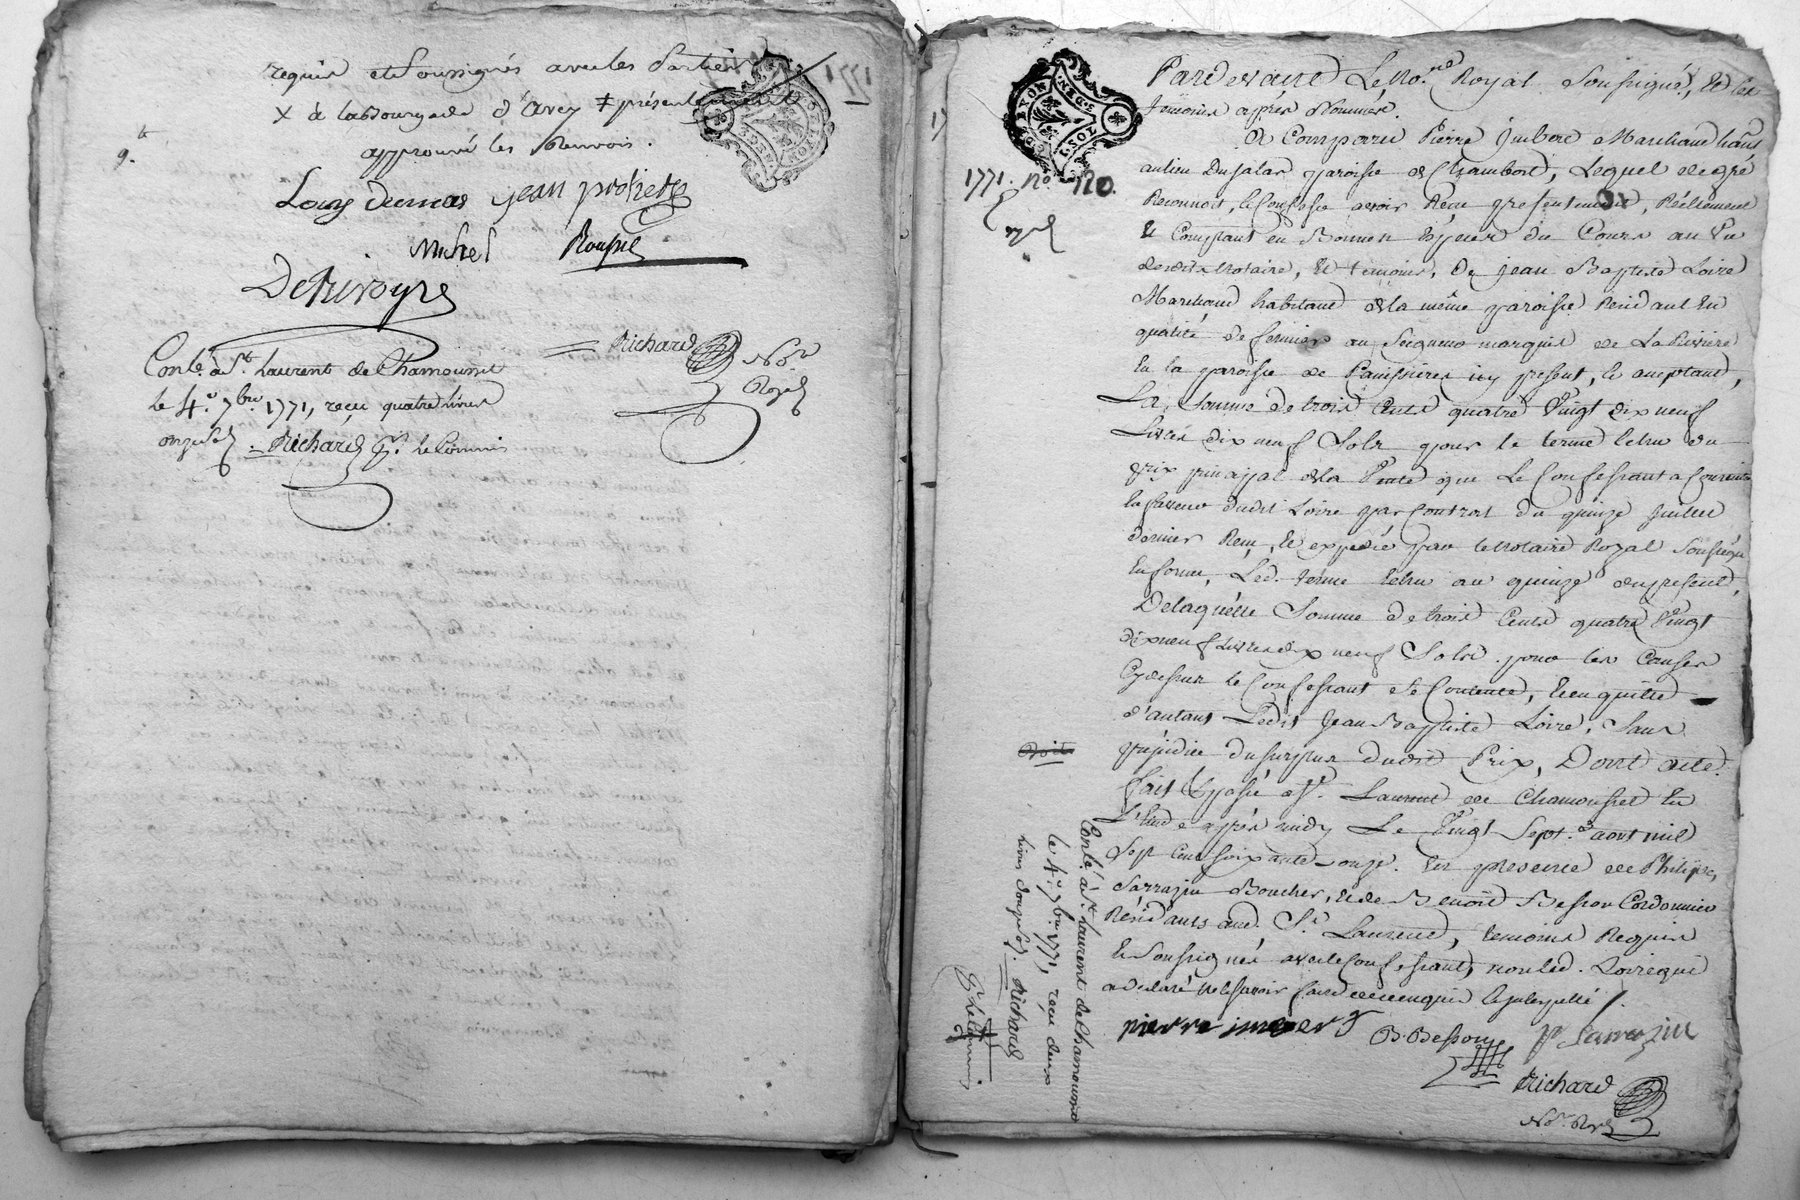 requis et soussignés avec les parties
x à la bourgade d'avey ‡ présentement
approuvé les renvois.
Louis dumas jean protiere
Michel Rousse
Derivoyre
Richard Nore
Royal
Conlé à St. Laurent de Chamousset
le 4e 7bre 1771, reçu quatre livres
onze sols Richard pr. le Commis
1771. no. 120.
GEN. DE LYON
1. SOL
Pardevant Le No.re Royal soussigné, et les
temoins après nommés.
A Comparu Pierre jmbert Marchand habt.
au lieu du jalas paroisse de Chambost, Lequel de gré
Reconnoit, le Confesse avoir Reçu presentement, Réellement
et Comptant en Bonnes Especes du Cours au Vu
dudit Notaire, et temoins, De jean Baptiste Loire
Marchand habitant de la même paroisse Residant en
qualité de fermier au Seigneur marquis de La Riviere
en la paroisse de Panissieres icy present, et acceptant,
La Somme de trois Cents quatre Vingt dix neuf
Livres dix neuf Sols pour le terme Echu du
prix principal de la Vente que Le Confessant a Consentie
En faveur dudit Loire par Contrat du quinze juillet
dernier Reçu, et expedié par le Notaire Royal Soussigné
En forme, Led. terme Echu au quinze du present,
De laquelle Somme de trois Cents quatre Vingt
dix neuf Livres dix neuf Sols pour les Causes
Cy dessus le Confessant se Contente, et en quitte
d'autant Ledit Jean Baptiste Loire, Sans
préjudice du surplus dudit Prix, Dont acte
fait et passé a St. Laurent de Chamousset En
L'Etude après midy Le Vingt Sept.e aout mil
Sept Cent soixante onze. En presence de Philipe
Sarrazin Boucher, et de Benoit Besson Cordonnier
Résidants aud. St. Laurent, temoins Requis
et Soussignés avec le Confessant, non led. Loire qui
a declaré ne le savoir faire de ce enquis et interpellé
pierre imbert B. Besson p Sarrazin
Richard
Nore Royal
Conlé à St. Laurent de Chamousset
le 4e 7bre 1771, reçu deux
livres douze sols. Richard
pr. le Commis